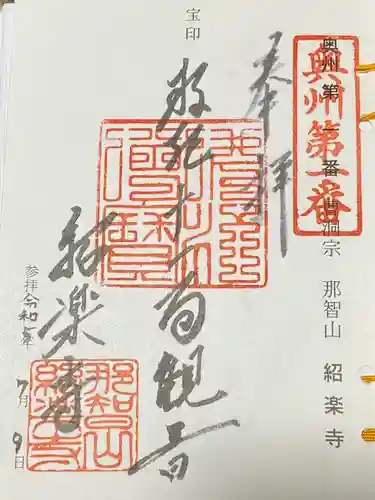 奥州第一番 曹洞宗 那智山 紹楽寺
奥州第一番
奉拝
十一面観音
紹楽寺
宝印
参拝 令和 年 7月 9日
那智山
紹楽寺